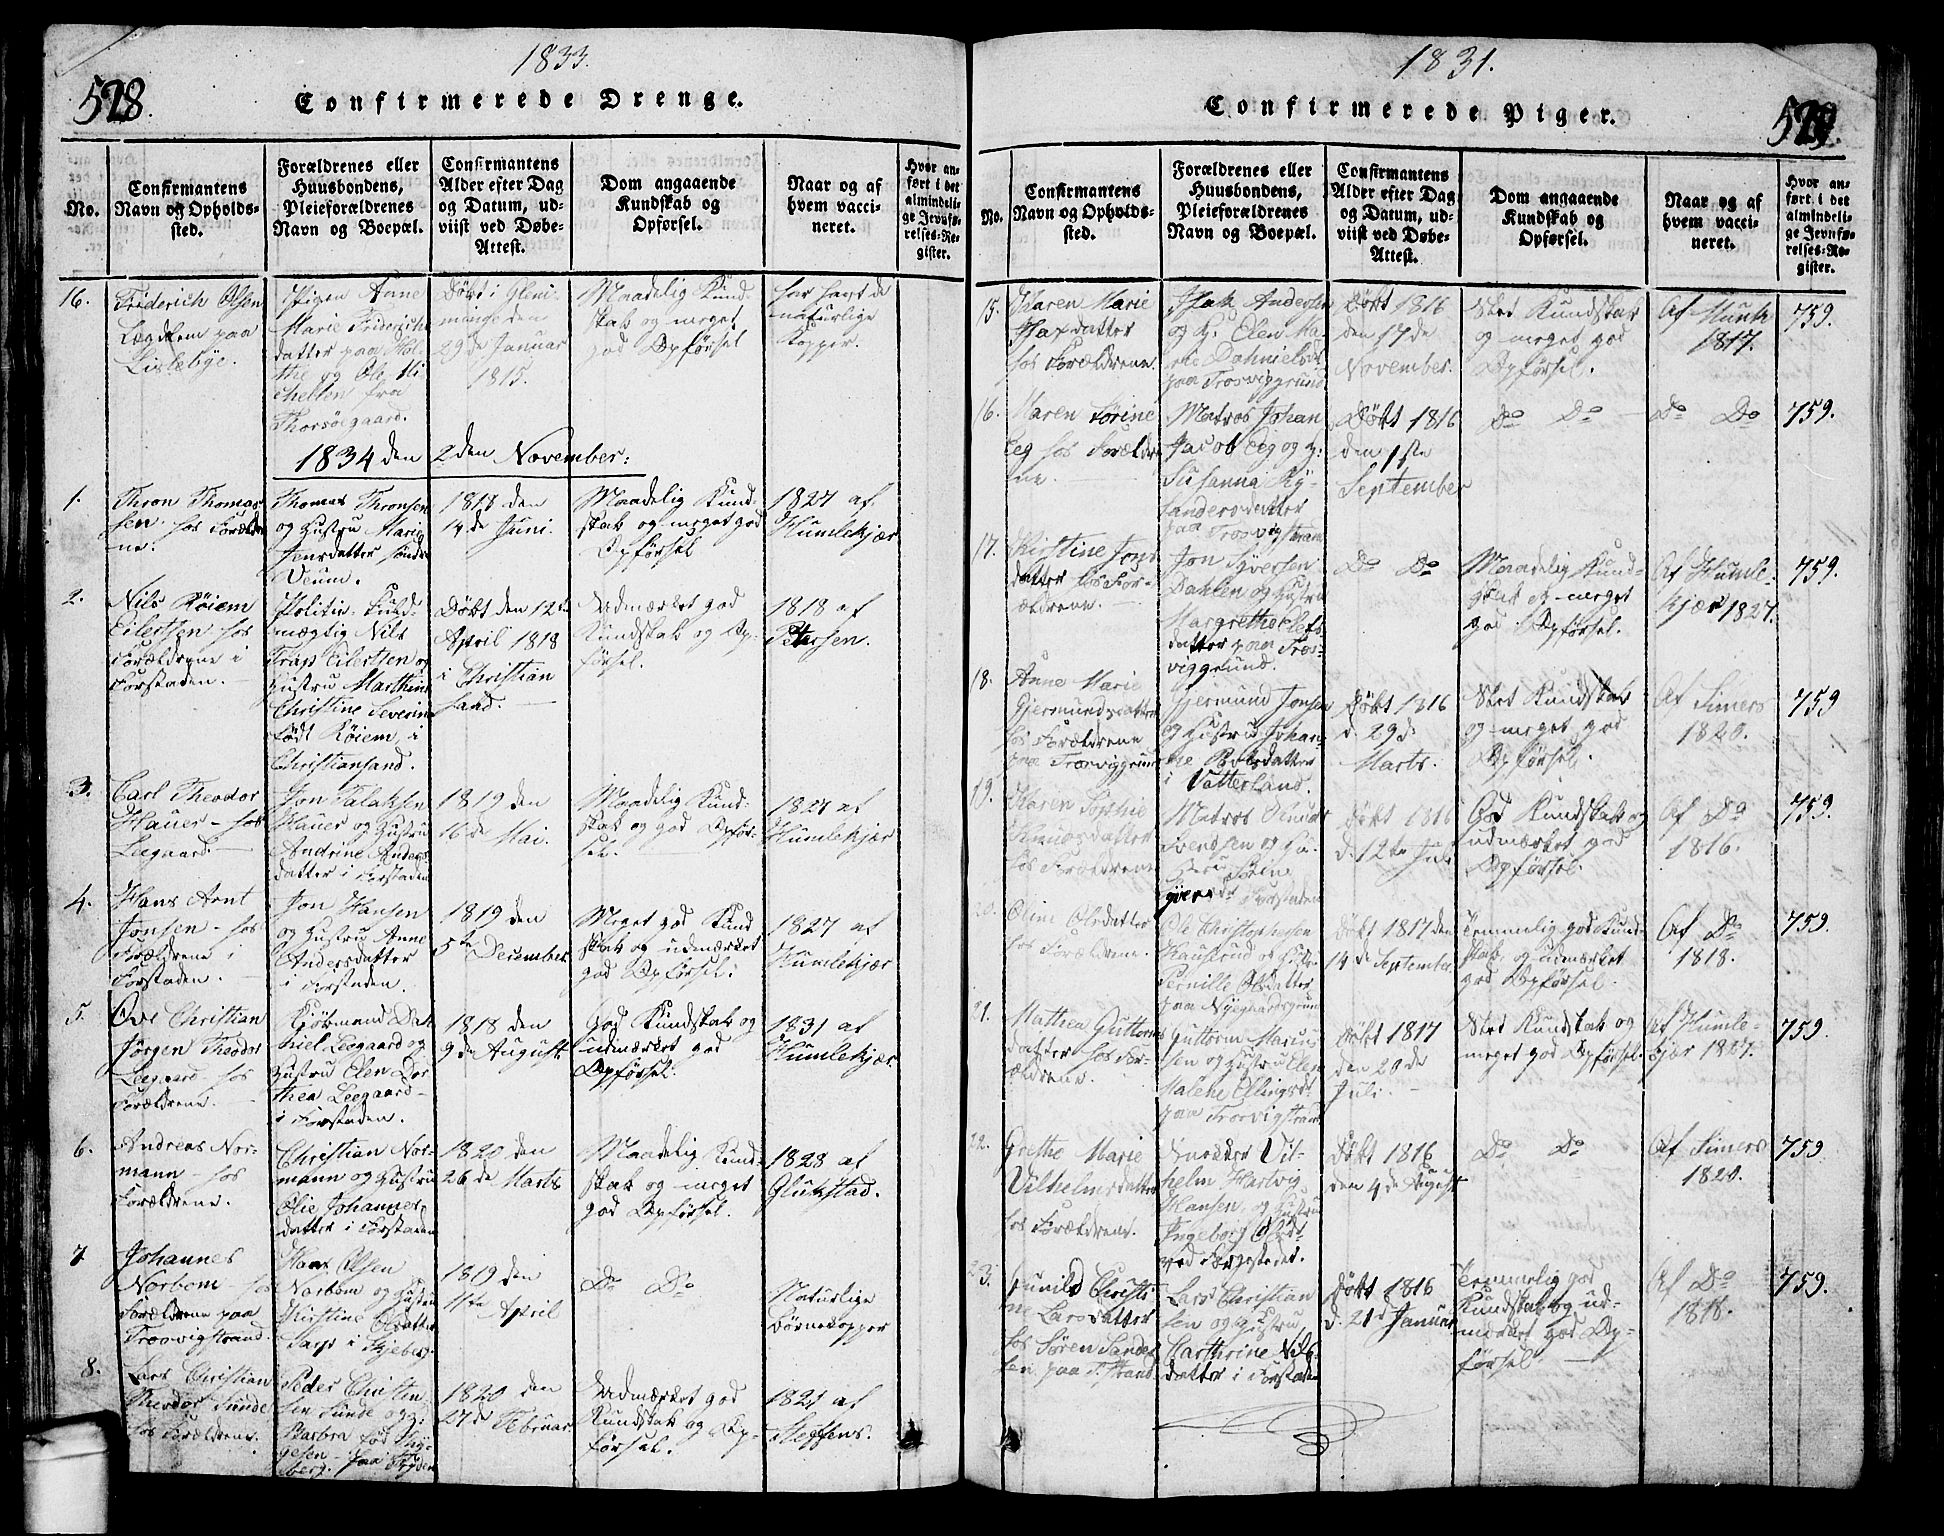 1833.
528.
Confirmerede Drenge.
No.
Confirmantens
Navn og Opholds-
sted.
Forældrenes eller
Huusbondens,
Pleieforældrenes
Navn og Boepæl.
Confirmantens
Alder efter Dag
og Datum, ud-
viist ved Døbe-
Attest.
Dom angaaende
Kundskab og
Opførsel.
Naar og af
hvem vacci-
neret.
Hvor an-
ført i det
almindeli-
ge Jevnfø-
relses-Re-
gister.
16.
Friderich Olsen
paa
Lislebye.
Pigen Anne
Marie Friderichs
datter paa
og Ole Mi
chelsen fra
Thorsøegaard.
Døbt i Glem-
minge den
29de Januar
1815.
Maadelig Kund-
skab og meget
god Opførsel
har havt de
naturlige
Kopper.
1834 den 2den November:
1.
Thron Thomas
sen. hos Forældre
ne.
Thomas Thronsen
og Hustru Marie
Jonsdatter Søndre
Veum.
1818 den
14de Juni.
Maadelig Kund-
skab og meget god
Opførsel
1827 af
Humlekjær
2.
Nils Röiem
Eilertsen hos
Forældrene i
Forstaden.
Politie-Fuld-
mægtig Nils
Trap Eilertsen og
Hustru Marthine
Christine Severine
født Röiem, i
Christiansand.
Döbt den 12te
April 1818
i Christian
sand.
Udmærket god
Kundskab og Op-
førsel.
1818 af
Petersen.
3.
Carl Theodor
Hauer - hos
Leegaard.
Jon Talaksen
Hauer og Hustru
Andrine Anders
datter i Forstaden
1819 den
16de Mai.
Maadelig Kund-
skab og god Opför-
sel.
1827 af
Humlekjær
4.
Hans Arnt
Jonsen - hos
Forældrene i
Forstaden.
Jon Hansen
og Hustru Anne
Andersdatter
i Forstaden.
1819 den
5te December
Meget god Kund
skab og udmærket
god Opførsel.
1827 af
Humlekjær
5.
Ove Christian
Jörgen Theodor
Leegaard hos
Forældrene.
Kjöbmand Da-
niel Leegaard og
Hustru Elen Dor
thea Leegaard
i Forstaden.
1818 den
9de August
God Kundskab og
udmærket god
Opførsel.
1831 af
Humlekjær
6.
Andreas Nor-
mann - hos
Forældrene.
Christian Nor-
mann og Hustru
Olie Johannes
datter i Forstaden
1820 den
26de Marts
Maadelig Kund
skab og meget
god Opførsel.
1828 af
Glukstad.
7.
Johannes
Norbom - hos
Forældrene paa
Trosvigstrand.
Hans Olsen
Norbom og Hustru
Kirstine Olsdatter
i Skjeberg.
1819 den
11te April
Do Do
Naturlige
Börnekopper
8.
Lars Christian
Theodor Sunde
hos Forældrene.
Peder Christen
sen Sunde og H:
Barbra fød Thÿ-
gesen paa Frÿden
berg.
1820 den
27de Februar
Udmærket god
Kundskab og Op-
försel.
1821 af
Steffens.
1831.
529.
Confirmerede Piger.
No.
Confirmantens
Navn og Opholds-
sted.
Forældrenes eller
Huusbondens,
Pleieforældrenes
Navn og Boepæl.
Confirmantens
Alder efter Dag
og Datum, ud-
viist ved Døbe-
Attest.
Dom angaaende
Kundskab og
Opførsel.
Naar og af
hvem vacci-
neret.
Hvor an-
ført i det
almindeli-
ge Jevnfø-
relses-Re-
gister.
15.
Karen Marie
Isaxdatter
hos Forældrene
Isak Andersen
og H: Elen Ma-
rie Dahnielsd:
paa Trosviggrund
Döbt 1816
den 17de
November.
Slet Kundskab
og meget god
Opførsel.
Af Munk
1817.
759.
16.
Maren Sørine
Eeg hos Forældre
ne
Matros Johan
Jacob Eeg og H:
Susanna
andersdatter
paa Trosvigstrand
Döbt 1816
den 1ste
September
Do Do
Do Do
759.
17.
Kirstine Jons
datter hos For-
ældrene.
Jon Syversen
Dahlen og Hustru
Margrethe Olefs
datter paa Tros-
viggrund.
Do Do
Maadelig Kund-
skab og meget
god Opførsel.
Af Humle-
kjær 1827.
759.
18.
Anne Marie
Gjermundsdatter
hos Forældrene
paa Trosviggrund
Gjermund Jonsen
og Hustru Johan-
ne Povelsdatter
i Vatterland.
Döbt 1816
d. 29de
Marts.
Slet Kundskab
og meget god
Opførsel.
Af Simers
1820.
759
19.
Karen Sophie
Knudsdatter
hos Forældrene
Matros Knud
Svendsen og Hu-
stru
i Forstaden
Döbt 1816
d. 12te Juli
God Kundskab og
udmærket god
Opførsel.
Af Do
1816.
759.
20.
Oline Olsdatter
hos Forældrene.
Ole Christophersen
Haugerud og Hustr:
Pernille Olsdatter
paa Nygaardsgrund
Döbt 1817 den
14de September
Temmelig god Kund-
skab og udmærket
god Opførsel.
Af Do
1818.
759.
21.
Mathea Guttorms
datter hos For-
ældrene.
Guttorm Marcus-
sen og Hustru Elen
Malene Ellingsd:
paa Trosvigstrand
Döbt 1817
den 20de
Juli.
Slet Kundskab og
meget god Opførsel.
Af Humle-
kjær 1827.
759.
22.
Grethe Marie
Vilhelmsdatter
hos Forældrene.
Snedker Vil-
helm Hartvig
Hansen, og Hustru
Ingeborg Olsdr
ved Færgestedet.
Döbt 1816
den 4de August
Do Do
Af Simers
1820.
759
23.
Gunild Christi
ne Larsdatter
hos Søren Sandes
sen paa T. Strand
Lars Christian
sen og Hustru
Carthrine Nils-
datter i Forstaden
Döbt 1816
d. 21d Januar
Temmelig god
Kundskab og ud-
mærket god Op-
førsel.
Af Do
1818.
759.